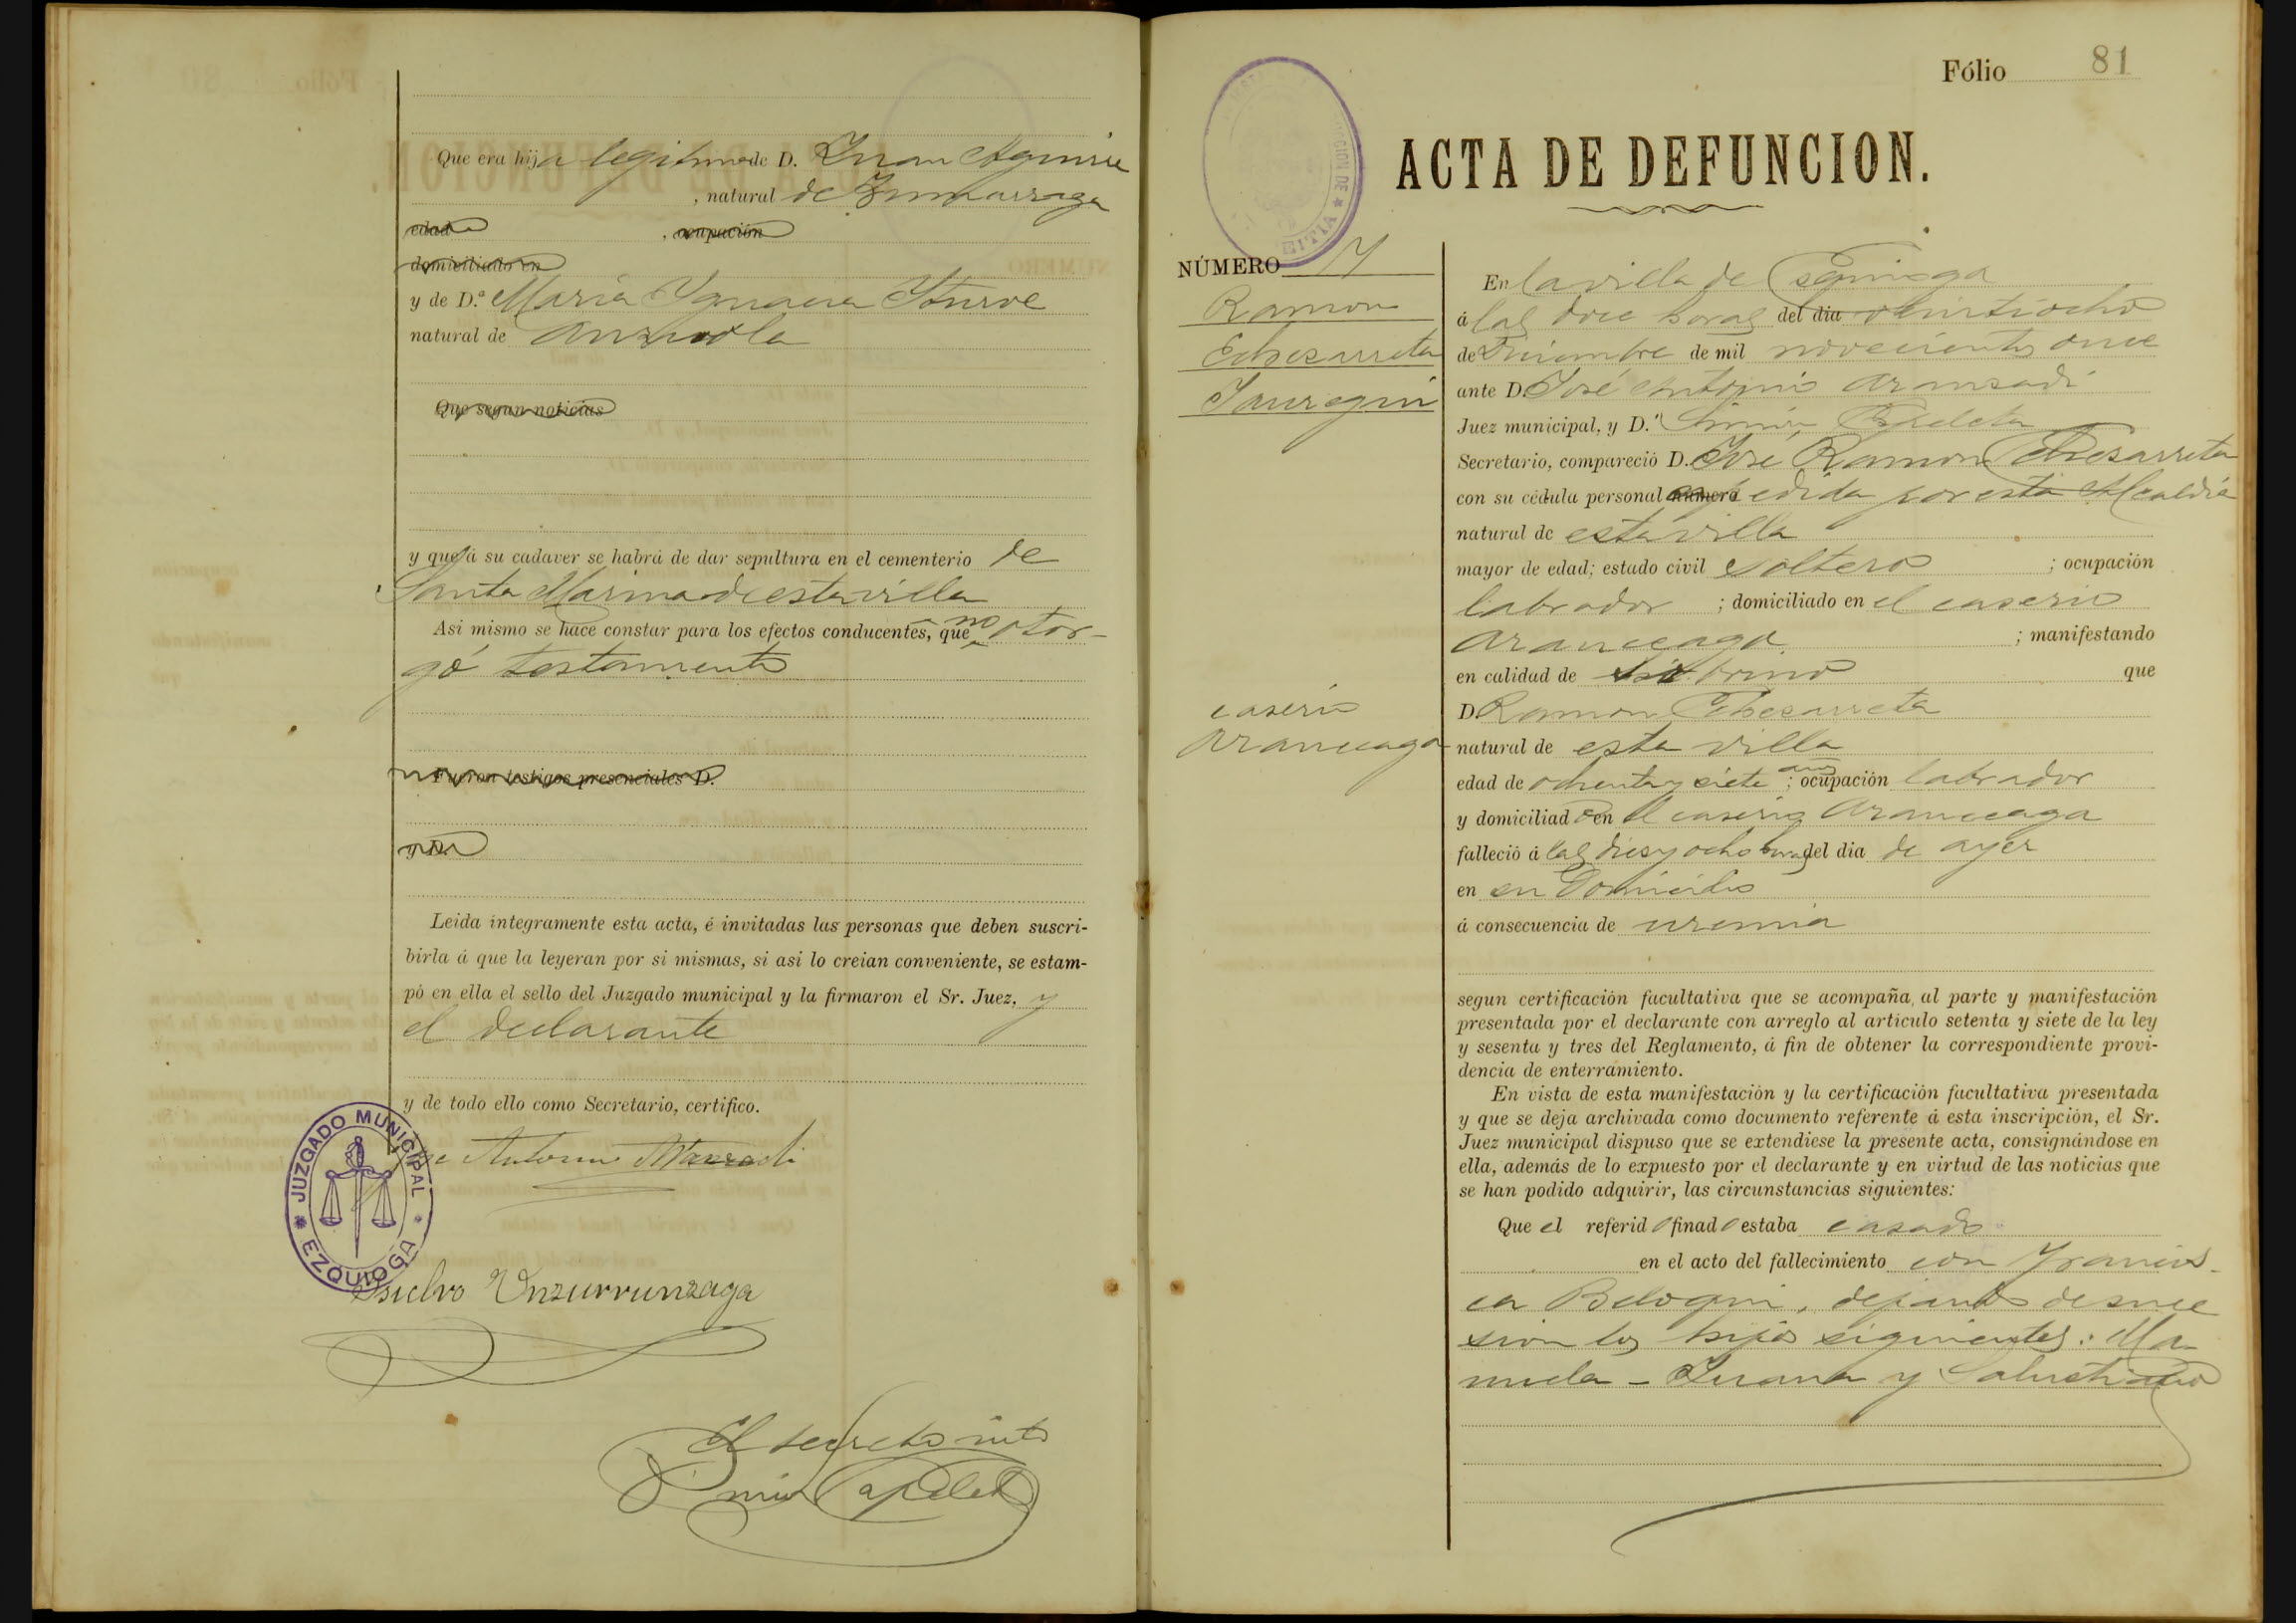 Que era hija legitima de D. Juan Aguirre
, natural de Zumarraga
edad , ocupación
domiciliado en
y de D.ª Maria Ygnacia Yturbe
natural de Anzuola
Que segun noticias
y que á su cadaver se habrá de dar sepultura en el cementerio de
Santa Marina de esta villa
Asi mismo se hace constar para los efectos conducentes, que no otor-
gó testamento
Fueron testigos presenciales D.
y D.
Leida integramente esta acta, é invitadas las personas que deben suscri-
birla á que la leyeran por si mismas, si asi lo creian conveniente, se estam-
pó en ella el sello del Juzgado municipal y la firmaron el Sr. Juez, y
el declarante
y de todo ello como Secretario, certifico.
JUZGADO MUNICIPAL
EZQUIOGA
Jose Antonio Aranzadi
Unzurrunzaga
El secretario
Fólio 81
ACTA DE DEFUNCION.
NÚMERO
Ramon
Echezarreta
Jauregui
caserio
Aranceaga
En la villa de Ezquioga
á las doce horas del dia veintiocho
de Diciembre de mil novecientos once
ante D. José Antonio Aranzadi
Juez municipal, y D. Simón
Secretario, compareció D. José Ramon Echezarreta
con su cédula personal número expedida por esta Alcaldia
natural de esta villa
mayor de edad; estado civil soltero ; ocupación
labrador ; domiciliado en el caserio
Aranceaga ; manifestando
en calidad de sobrino que
D. Ramon Echezarreta
natural de esta villa
edad de ochenta y siete años ; ocupación labrador
y domiciliado en el caserio Aranceaga
falleció á las diez y ocho horas del dia de ayer
en su domicilio
á consecuencia de uremia
segun certificación facultativa que se acompaña, al parte y manifestación
presentada por el declarante con arreglo al articulo setenta y siete de la ley
y sesenta y tres del Reglamento, á fin de obtener la correspondiente provi-
dencia de enterramiento.
En vista de esta manifestación y la certificación facultativa presentada
y que se deja archivada como documento referente á esta inscripción, el Sr.
Juez municipal dispuso que se extendiese la presente acta, consignándose en
ella, además de lo expuesto por el declarante y en virtud de las noticias que
se han podido adquirir, las circunstancias siguientes:
Que el referido finado estaba casado
en el acto del fallecimiento con Francis-
ca Beloqui, dejando de suce
sion los hijos siguientes: Ma-
nuela - Juana y Salustiano